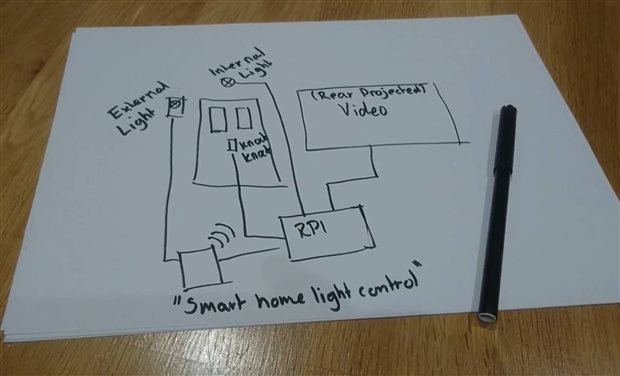 Internal
Light
External
Light
(Rear Projected)
Video
Knock
Knock
RPI
"Smart home light control"